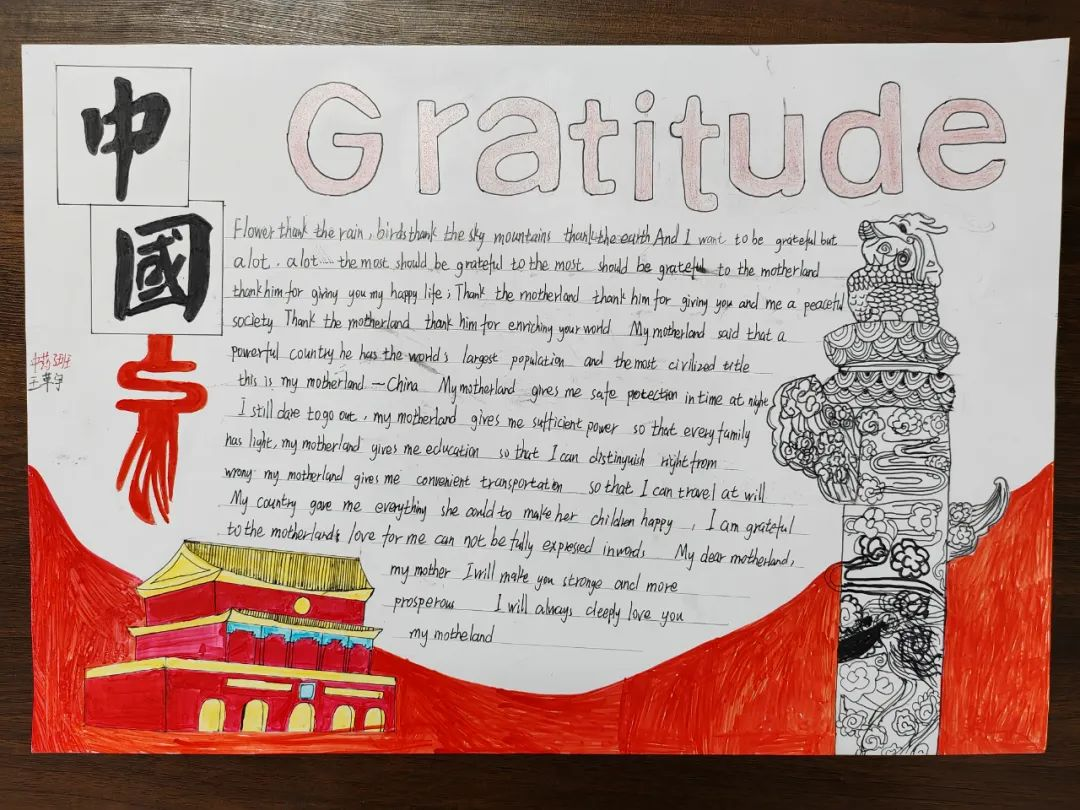 中
國
Gratitude
Flower thank the rain, birds thank the sky mountains thank the earth And I want to be grateful but
a lot. a lot the most should be grateful to the most should be grateful to the motherland
thank him for giving you my happy life; Thank the motherland thank him for giving you and me a peaceful
society Thank the motherland thank him for enriching your world My motherland said that a
powerful country he has the world's largest population and the most civilized title
this is my motherland — China My motherland gives me safe protection in time at night
I still dare to go out, my motherland gives me sufficient power so that every family
has light, my motherland gives me education so that I can distinguish right from
wrong my motherland gives me convenient transportation so that I can travel at will
My country gave me everything she could to make her children happy , I am grateful
to the motherlands love for me can not be fully expressed in words My dear motherland,
my mother I will make you stronge and more
prosperous I will always deeply love you
my motheland